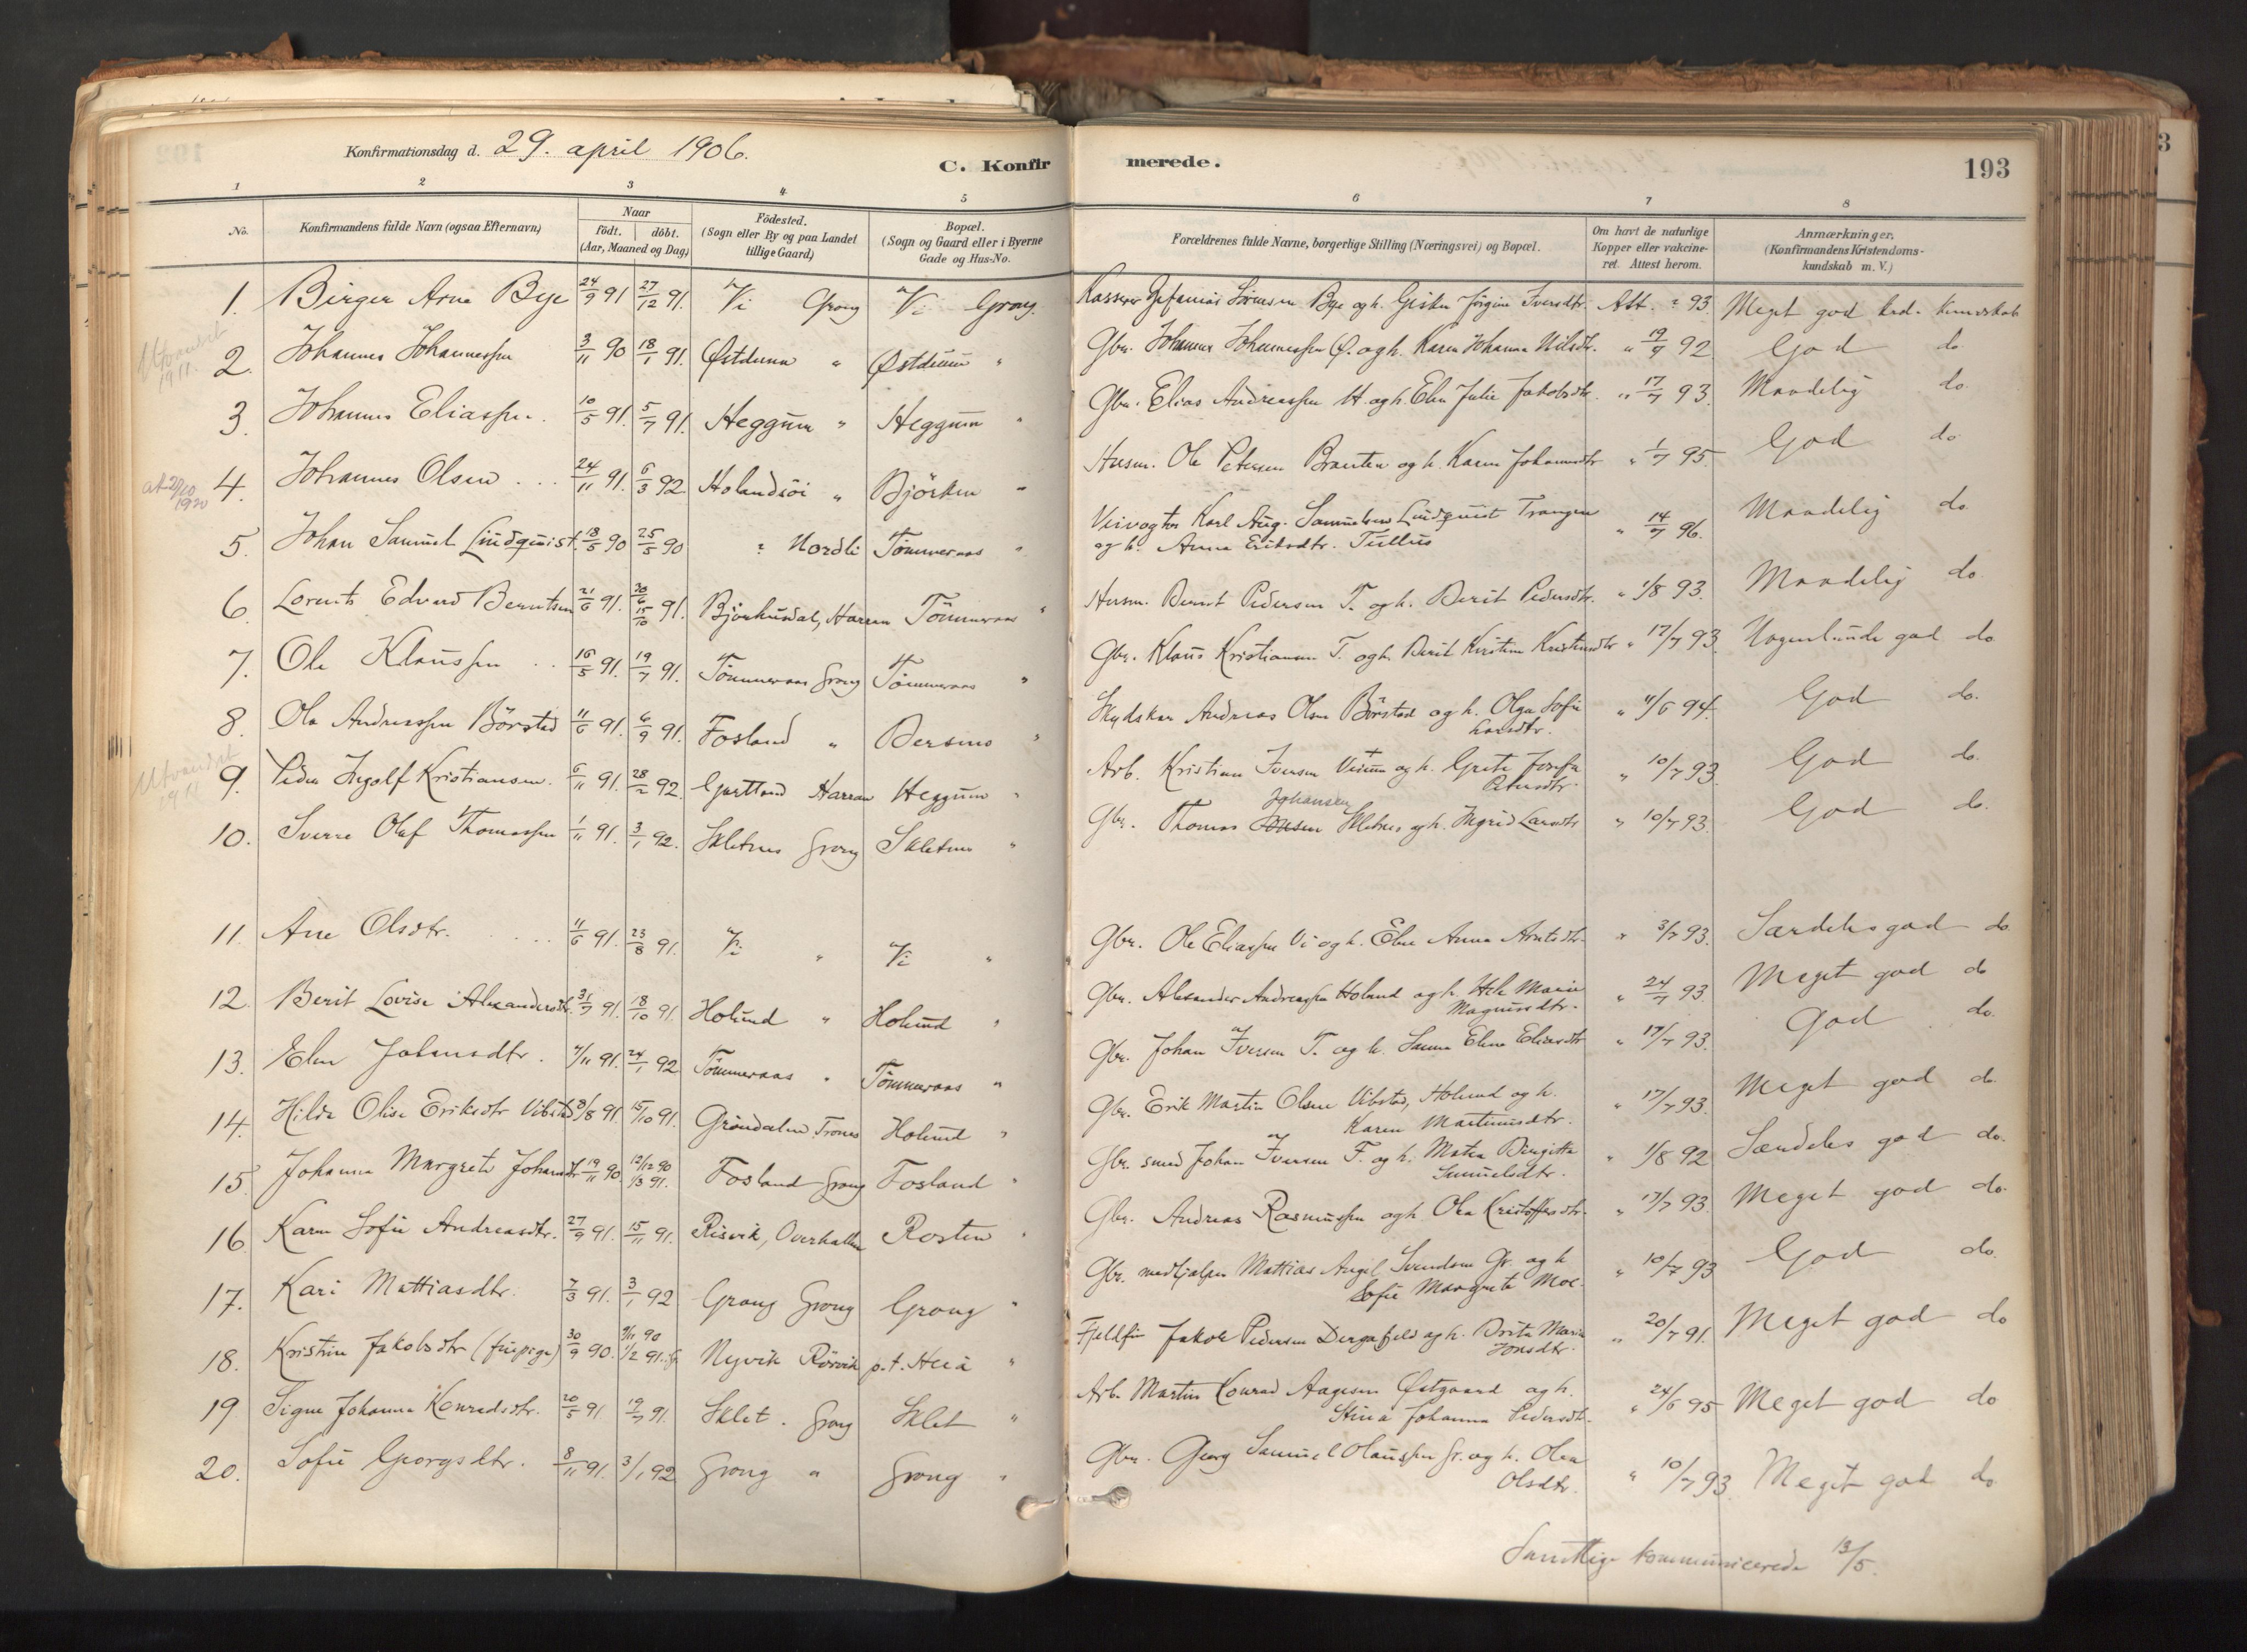 Konfirmationsdag d. 29. april 1906.
C. Konfirmerede.
193
1 2 3 4 5 6 7 8
No.
Konfirmandens fulde Navn (ogsaa Efternavn)
Naar
födt. döbt.
(Aar, Maaned og Dag)
Födested.
(Sogn eller By og paa Landet
tillige Gaard)
Bopæl.
(Sogn og Gaard eller i Byerne
Gade og Hus-No.
Forældrenes fulde Navne, borgerlige Stilling (Næringsvei) og Bopæl.
Om havt de naturlige
Kopper eller vakcine-
ret. Attest herom.
Anmærkninger.
(Konfirmandens Kristendoms-
kundskab m. V.)
1. Birger Arne Bye 24/9 91 27/12 91. Vi Grong Vi Grong. Kasserer Sörensen Bye og h. Jörgine Iversdtr. Att. 93. Meget god krd. kundskab
Utvandret 1911.
2. Johannes Johannessen 3/11 90 18/1 91. Østdunn " Østdunn " Gbr. Johannes Johannessen Ø. og h. Karen Johanna Nilsdtr. " 19/9 92. God do
3. Johannes Eliassen. 10/5 91. 5/7 91. Heggum " Heggum " Gbr. Elias Andreassen H. og h. Elen Julie Jakobsdtr. " 17/7 93. Maadelig do.
4. Johannes Olsen 24/11 91. 6/3 92. Holandsöi " Björken " Husm. Ole Petersen Brauten og h. Karen Johannsdtr " 1/7 95. God do.
1920
5. Johan Samuel Lindquist. 18/5 90 25/5 90 Nordli Tömmeraas " Veivogter Karl Aug. Samuelsen Lindquist Trangen
og h. Anna Eriksdtr. Tullus " 14/7 96. Maadelig do.
6. Lorents Edvard Berntsen 21/6 91. 30/6 15/10 91. Björkusdal, Harran Tömmeraas " Husm. Bernt Pedersen T. og h. Berit Pedersdtr. " 1/8 93. Maadelig do.
7. Ole Klaussen 16/5 91. 19/7 91. Tömmeraas Grong Tömmeraas " Gbr. Klaus Kristiansen T. og h. Berit Kirstine Kristensdtr " 17/7 93. Nogenlunde god do
8. Ola Andreassen Börstad 11/6 91. 6/9 91. Fosland " Bersmo " Skydskar Andreas Olsen Börstad og h. Olga Sofie
Larsdtr. " 11/6 94. God do.
Utvandret
9. Peder Ingolf Kristiansen. 6/11 91. 28/2 92. Gartland Harran Heggum " Arb. Kristian Iversen Veium og h. Grete Josefa
Petersdtr. " 10/7 93. God do.
10. Sverre Olaf Thomassen 1/11 91. 3/1 92. Skletmo Grong Skletmo " Gbr. Thomas Johansen Skletmo og h. Ingrid Larsdtr " 10/7 93. God do.
11. Ane Olsdtr. 11/6 91. 23/8 91. Vi " Vi " Gbr. Ole Eliassen Vi og h. Elen Anna Arntsdtr. " 3/7 93. Særdeles god do.
12. Berit Lovise Alexandersdtr. 31/7 91. 18/10 91. Holand " Holand " Gbr. Alexander Andreassen Holand og h. Marie
Magnusdtr. " 24/7 93. Meget god do
13. Elen Johansdtr. 7/11 91. 24/1 92 Tömmeraas " Tömmeraas " Gbr. Johan Iversen T. og h. Sanna Elena Eliasdtr " 17/7 93. God do.
14. Hilda Olise Eriksdtr Vibstad 8/8 91. 15/10 91. Gröndalen Trones Holand " Gbr. Erik Martin Olsen Vibstad, Holand og h.
Karen Martinusdtr. " 17/7 93. Meget god do.
15. Johanna Margrete Johansdtr 19/11 90. 12/12 90 1/3 91. Fosland Grong Fosland " Gbr. smed Johan Iversen F. og h. Birgitta
Samuelsdtr. " 1/8 92 Særdeles god do.
16. Karen Sofie Andreasdtr. 27/9 91. 15/11 91. Risvik, Overhallen Rosten " Gbr. Andreas Rasmussen og h. Olea Kristoffersdtr. " 17/7 93. Meget god do.
17. Kari Mattiasdtr. 7/3 91. 3/1 92 Grong Grong Grong " Gbr. medhjelper Mattias Angel Svendsen Gr. og h
Sofie Margrete Moe. " 10/7 93 God do.
18. Kristine Jakobsdtr (finpige) 30/9 90. 9/11 90 1/2 91. Nyvik Rörvik p.t. Heia " Fjeldfin Jakob Pedersen Dergafjeld og h. Brita Maria
Jonsdtr. " 20/7 91. Meget god do
19 Signe Johanna Konradsdtr. 20/5 91 19/7 91. Sklet. Grong Sklet " Arb. Martin Konrad Aagesen Østgaard og h.
Stina Johanna Pedersdtr. " 24/6 95 Meget god do
20. Sofie Georgsdtr. 8/11 91. 3/1 92 Grong " Grong " Gbr. Georg Samuel Olaussen Gr. og h. Olea
Olsdtr. " 10/7 93. Meget god do.
Samtlige kommunicerede 13/5.